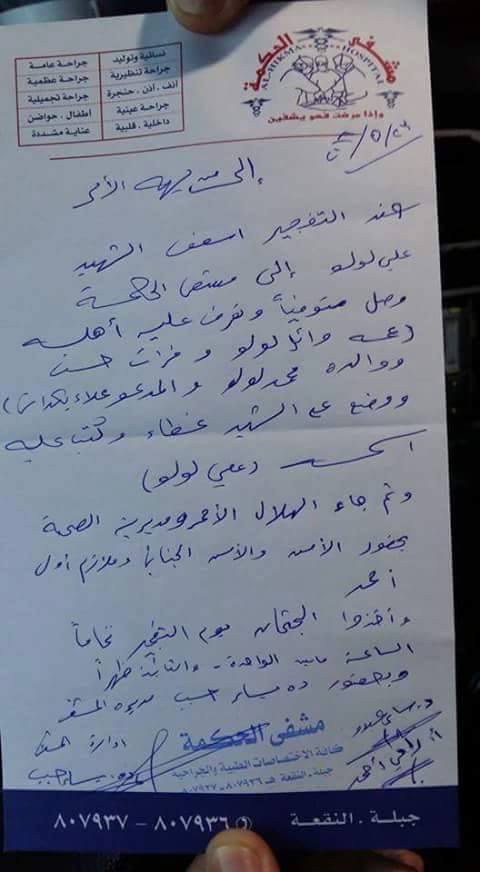 مشفى الحكمة
AL-HIKMA HOSPITAL
وإذا مرضت فهو يشفين
نسائية وتوليد
جراحة عامة
جراحة تنظيرية
جراحة عظمية
أنف . أذن . حنجرة
جراحة تجميلية
جراحة عينية
أطفال . حواضن
داخلية . قلبية
عناية مشددة
إلى من يهمه الأمر
عند التفجير اسعف الشهيد
علي لولو إلى مستشفى الحكمة
وصل متوفياً وتعرف عليه أهله
(عمه وائل لولو و فراث حسن
ووالده محمد لولو و المدعو علاء بكداش)
ووضع على الشهيد غطاء وكتب عليه
اسمه (علي لولو)
وثم جاء الهلال الأحمر ومديرية الصحة
بحضور الأمن والأمن الجنائي وملازم أول
أحمد
وأخذوا الجثمان يوم التفجير تماماً
الساعة مابين الواحدة - والثانية ظهراً
وبحضور مديرة المشفى
إدارة المشفى
مشفى الحكمة
كافة الاختصاصات الطبية والجراحية
جبلة . النقعة هـ ٨٠٧٩٣٦ - ٨٠٧٩٣٧
جبلة . النقعة ٨٠٧٩٣٦ - ٨٠٧٩٣٧